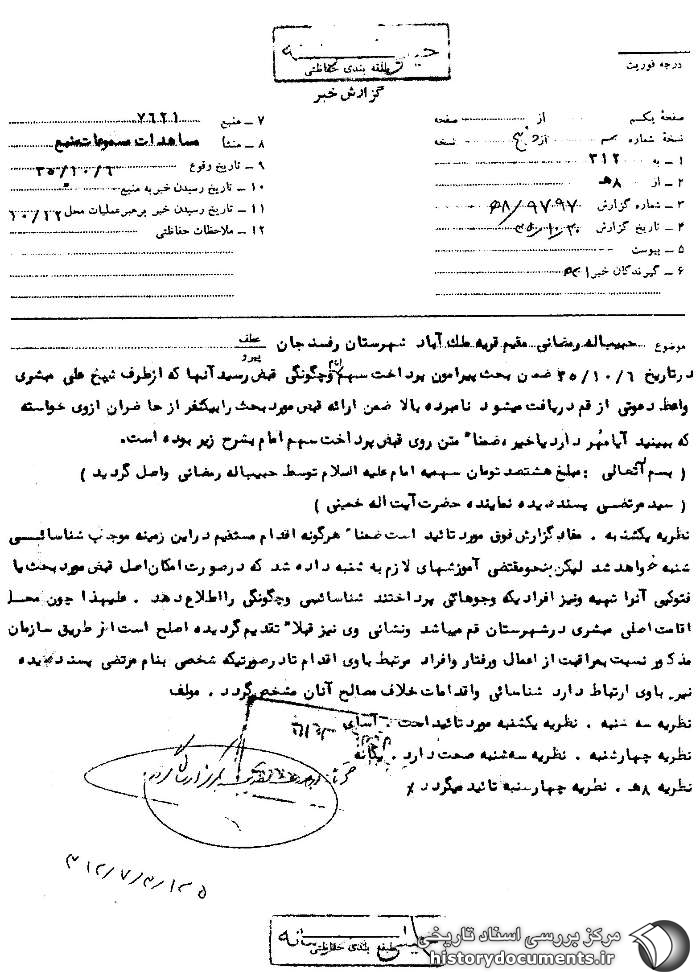 خیلی محرمانه
طبقه بندی حفاظتی
درجه فوریت
گزارش خبر
صفحه یکم از صفحه
نسخه شماره از نسخه
۱ ـ به ۳۱۲
۲ ـ از ۸هـ
۳ ـ شماره گزارش
۴ ـ تاریخ گزارش
۵ ـ پیوست
۶ ـ گیرندگان خبر
۷ ـ منبع ۷۶۲۱
۸ ـ منشأ مشاهدات مسموعات منبع
۹ ـ تاریخ وقوع ۳۵/۱۰/۶
۱۰ ـ تاریخ رسیدن خبر به منبع
۱۱ ـ تاریخ رسیدن خبر برهبر عملیات محل ۱۰/۱۲
۱۲ ـ ملاحظات حفاظتی
موضوع حبیباله رمضانی مقیم قریه ملک آباد شهرستان رفسنجان عطف پیرو
درتاریخ ۳۵/۱۰/۶ ضمن بحث پیرامون پرداخت سهم امام وچگونگی قبض رسید آنها که ازطرف شیخ علی مبشری
واعظ دعوتی از قم دریافت میشود نامبرده بالا ضمن ارائه قبض مورد بحث رابیکنفر از حاضران ازوی خواسته
که ببینید آیامهر دارد یاخیر، ضمنا" متن روی قبض پرداخت سهم امام بشرح زیر بوده است.
( بسم آلتعالی : مبلغ هشتصد تومان سهمیه امام علیه السلام توسط حبیباله رمضانی واصل گردید )
( سید مرتضی پسندیده نماینده حضرت آیت اله خمینی )
نظریه یکشنبه . مفاد گزارش فوق مورد تائید است ضمنا" هرگونه اقدام مستقیم دراین زمینه موجب شناسائی
شنبه خواهد شد لیکن بنحو مقتضی آموزشهای لازم به شنبه داده شد که درصورت امکان اصل قبض مورد بحث یا
فتوکپی آنرا تهیه ونیز افرادیکه وجوهاتی پرداختند شناسائی وچگونگی را اطلاع دهد . علیهذا چون محل
اقامت اصلی مبشری درشهرستان قم میباشد ونشانی وی نیز قبلا" تقدیم گردیده اصلح است از طریق سازمان
مذکور نسبت بمراقبت از اعمال ورفتار وافراد مرتبط باوی اقدام تادرصورتیکه شخصی بنام مرتضی پسندیده
نیز باوی ارتباط دارد شناسائی واقدامات خلاف مصالح آنان مشخص گردد . مولف
نظریه سه شنبه . نظریه یکشنبه مورد تائید است . آسای
نظریه چهارشنبه . نظریه سه شنبه صحت دارد . یگانه
نظریه ۸هـ . نظریه چهارشنبه تائید میگردد
طبقه بندی حفاظتی
مرکز بررسی اسناد تاریخی
historydocuments.ir